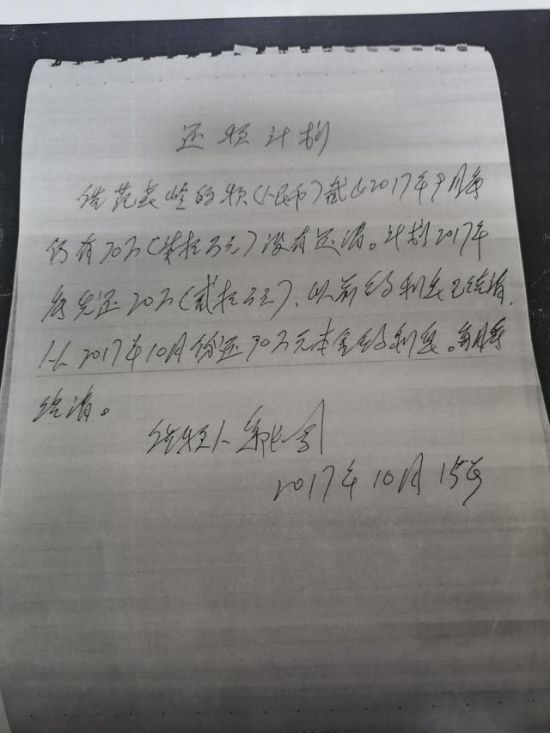 还款计划
借范 的款(人民币)截止2017年9月底
仍有70万(柒拾万元)没有还清。计划2017年
底先还20万(贰拾万元)、以前的利息已结清,
从2017年10月份还70万元本金的利息。每月
结清。
借款人
2017年10月15号